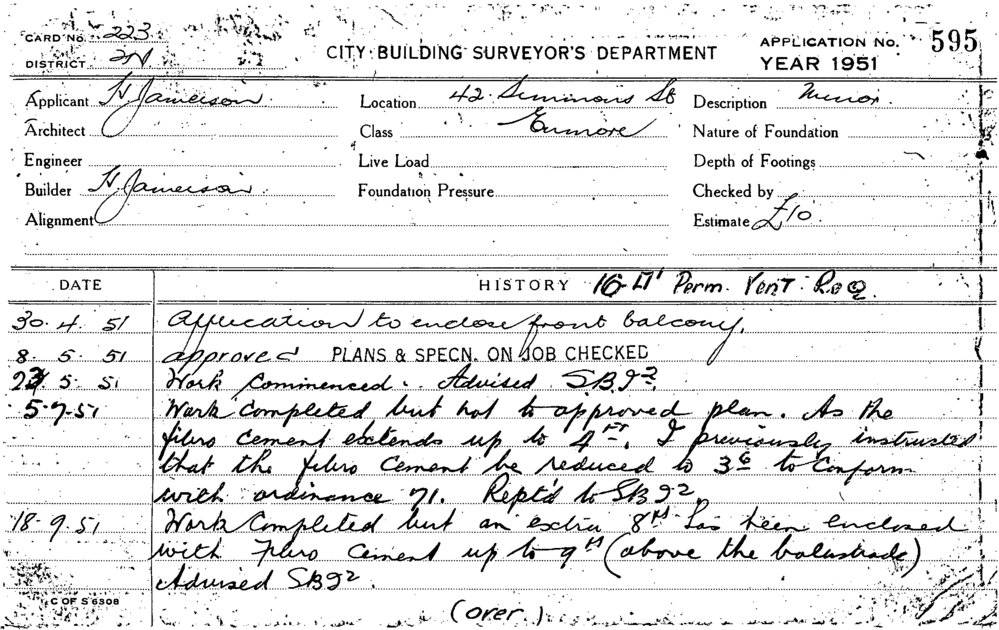 CARD No. 223
DISTRICT
CITY BUILDING SURVEYOR'S DEPARTMENT
APPLICATION No. 595
YEAR 1951
Applicant H Jamerson
Location 42 Simmons St
Description Minor
Architect
Class Enmore
Nature of Foundation
Engineer
Live Load
Depth of Footings
Builder H Jamerson
Foundation Pressure
Checked by
Alignment
Estimate £10
DATE
HISTORY 16 Perm. Vent. Req.
30.4.51 Application to enclose front balcony.
8.5.51 approved PLANS & SPECN. ON JOB CHECKED
23.5.51 Work Commenced. Advised SBI2.
5-7-51 Work Completed but not to approved plan. As the
fibro cement extends up to 4FT. I previously instructed
that the fibro cement be reduced to 3 6 to Conform
with ordinance 71. Rept'd to SBI2.
18-9.51 Work Completed but an extra 8 has been enclosed
with Fibro Cement up to 9 (above the balustrade)
Advised SBI2.
C OF S 6308
(over.)